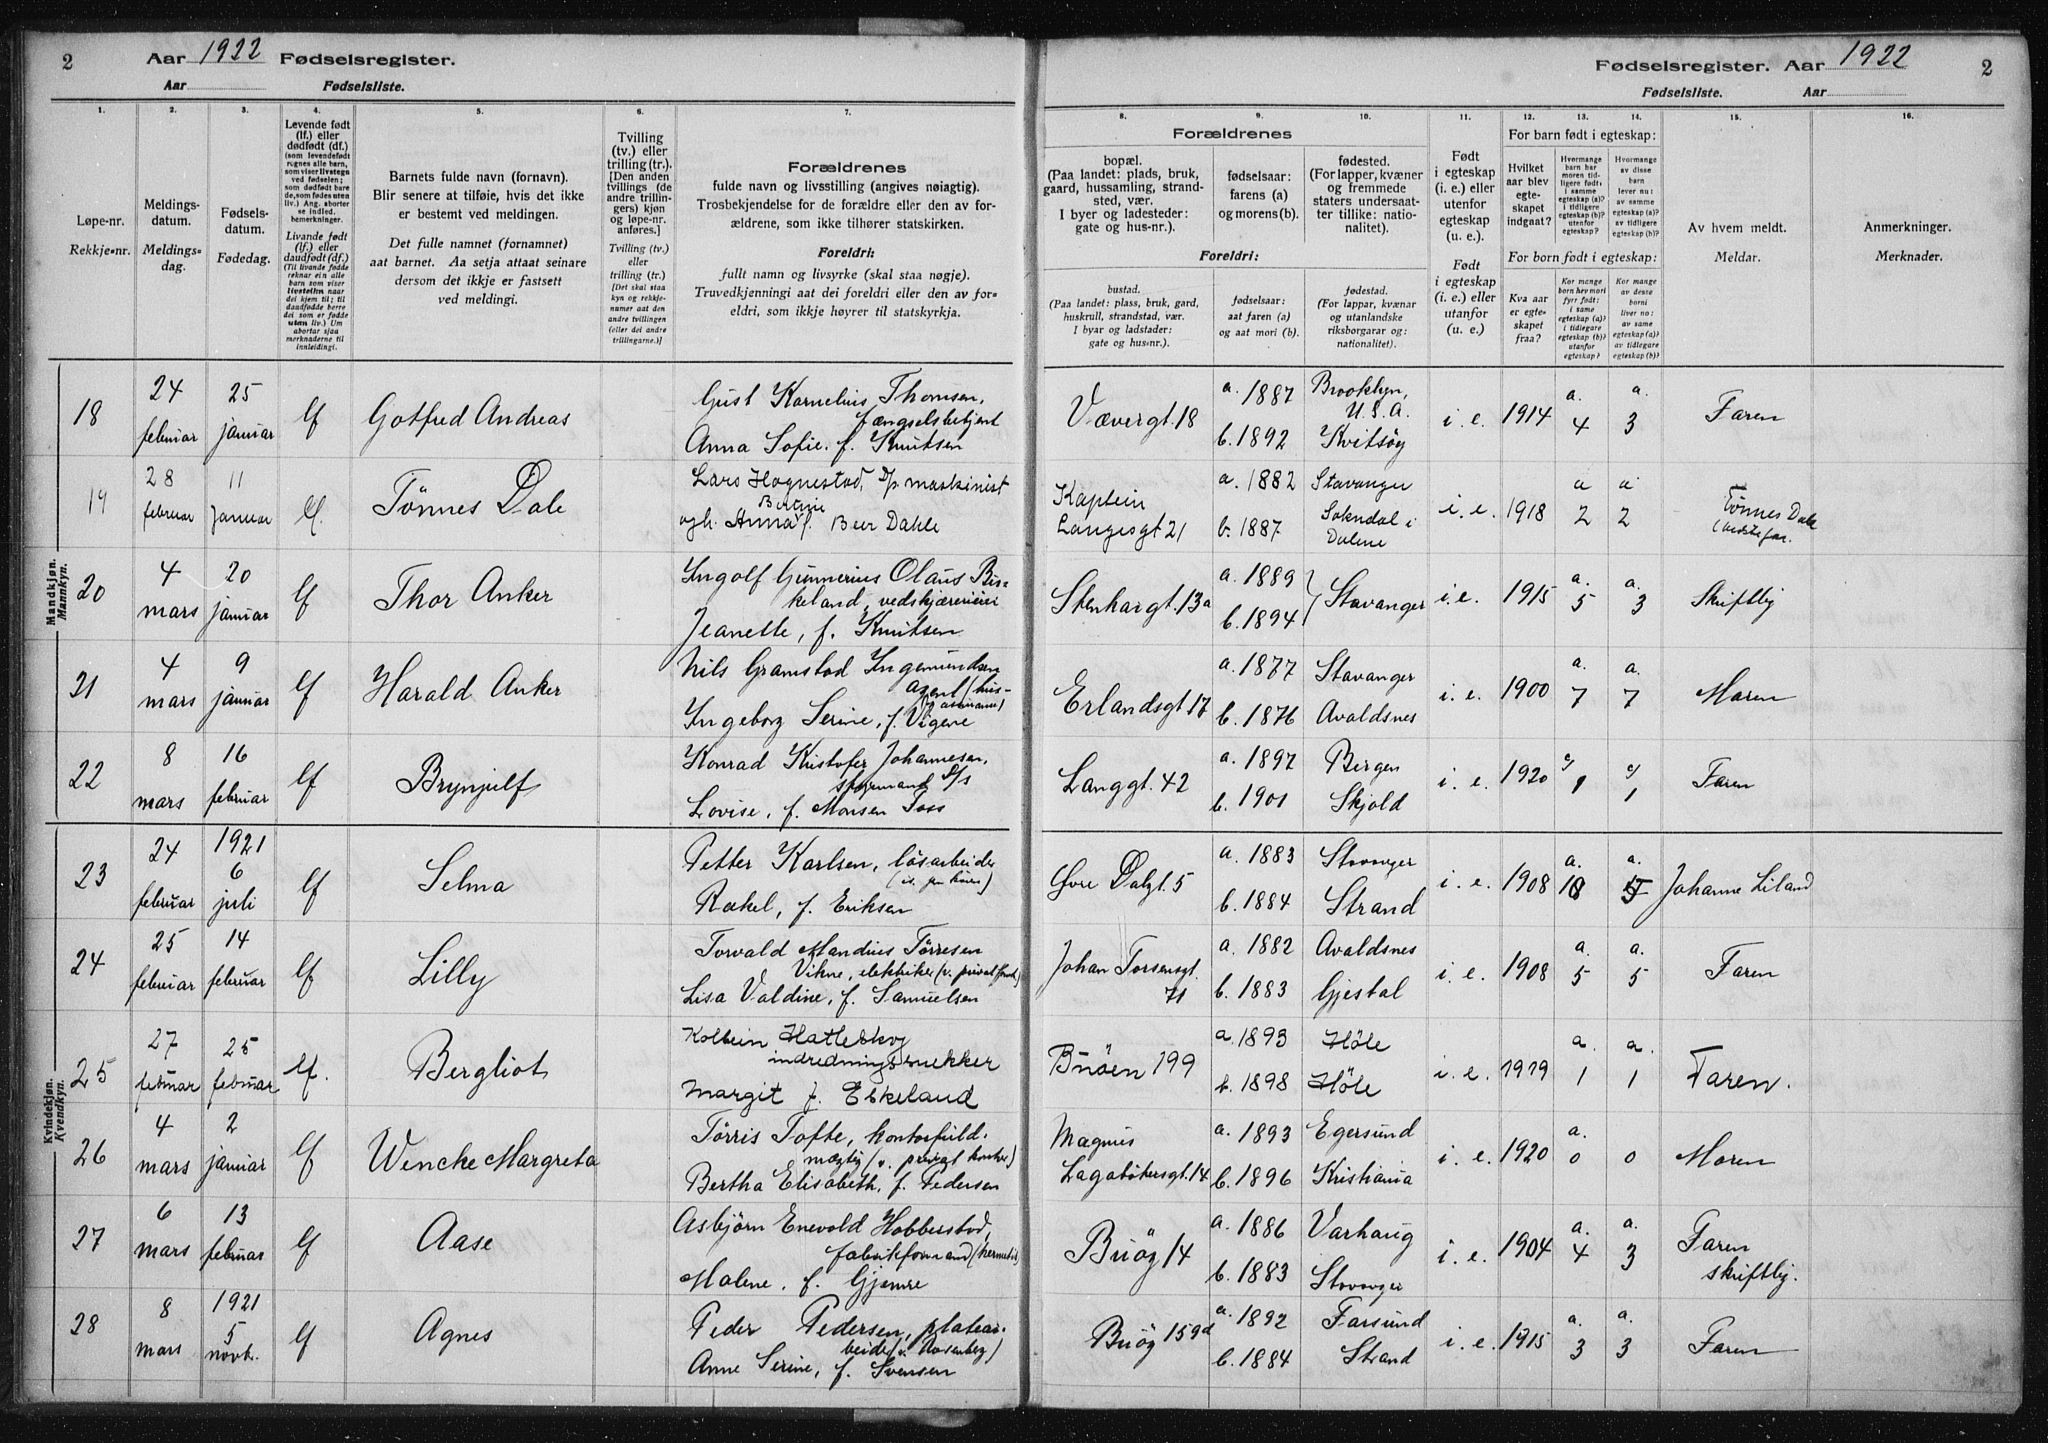 2 Aar 1922 Fødselsregister.
Aar Fødselsliste.
Fødselsregister. Aar 1922 2
Fødselsliste. Aar
1. 2. 3. 4. 5. 6. 7. 8. 9. 10. 11. 12. 13. 14. 15. 16.
Løpe-nr.
Rekkje-nr.
Meldings-
datum.
Meldings-
dag.
Fødsels-
datum.
Fødedag.
Levende født
(lf.) eller
dødfødt (df.)
Livande født
(lf.) eller
daudfødt (df.)
Barnets fulde navn (fornavn).
Blir senere at tilføie, hvis det ikke
er bestemt ved meldingen.
Det fulle namnet (fornamnet)
aat barnet. Aa setja attaat seinare
dersom det ikkje er fastsett
ved meldingi.
Tvilling
(tv.) eller
trilling (tr.).
[Den anden
tvillings (de
andre trillin-
gers) kjøn
og løpe-nr.
anføres.]
Tvilling (tv.)
eller
trilling (tr.)
Forældrenes
fulde navn og livsstilling (angives nøiagtig).
Trosbekjendelse for de forældre eller den av for-
ældrene, som ikke tilhører statskirken.
Foreldri:
fullt namn og livsyrke (skal staa nøgje).
Truvedkjenningi aat dei foreldri eller den av for-
eldri, som ikkje høyrer til statskyrkja.
Forældrenes
bopæl.
(Paa landet: plads, bruk,
gaard, hussamling, strand-
sted, vær.
I byer og ladesteder:
gate og hus-nr.).
fødselsaar:
farens (a)
og morens (b).
fødested.
(For lapper, kvæner
og fremmede
staters undersaat-
ter tillike: natio-
nalitet).
Foreldri:
bustad.
(Paa landet: plass, bruk, gard,
huskrull, strandstad, vær.
I byar og ladstader:
gate og hus-nr.).
fødselsaar:
aat faren (a)
og aat mori (b).
fødestad.
(For lappar, kvænar
og utanlandske
riksborgarar og:
nationalitet).
Født
i egteskap
(i. e.) eller
utenfor
egteskap
(u. e.).
Født
i egteskap
(i. e.) eller
utanfor
(u. e.).
For barn født i egteskap:
Hvilket
aar blev
egte-
skapet
indgaat?
For born født i egteskap:
Kva aar
er egte-
skapet
fraa?
Av hvem meldt.
Meldar.
Anmerkninger.
Merknader.
Mandkjøn.
Mannkyn.
18 24 februar 25 januar lf Gotfred Andreas Gust Kornelius Thomsen, fængselsbetjent Anna Sofie, f. Knutsen Vævergt. 18 a. 1887 Brooklyn, U.S.A. b. 1892 Kvitsøy i. e. 1914 a. 4 a. 3 Faren
19 28 februar 11 januar lf. Tönnes Dale Lars Hognestad, D/s maskinist ogh. Anna Bertine f. Beer Dahle Kaptein Langesgt 21 a. 1882 Stavanger b. 1887 Sokndal i Dalene i. e. 1918 a 2 a 2 Tönnes Dale
20 4 mars 20 januar lf Thor Anker Ingolf Gunnerius Olaus Birkeland, vedskjærerieier Jeanette, f. Knutsen Stenhargt. 13a a. 1889 b. 1894 Stavanger i. e. 1915 a. 5 a. 3 Skriftlig
21 4 mars 9 januar lf Harald Anker Nils Gramstad Ingemundsen agent Ingeborg Serine, f. Vigene Erlandsgt. 17 a. 1877 Stavanger b. 1876 Avaldsnes i. e. 1900 a. 7 a. 7 Moren
22 8 mars 16 februar lf Brynjulf Konrad Kristofer Johannesen, styrmand D/s Lovise, f. Monsen Loss Langgt. 42 a. 1897 Bergen b. 1901 Skjold i. e. 1920 a/ 1 a/ 1 Faren
Kvindekjøn.
Kvendkyn.
23 24 februar 1921 6 juli lf Selma Petter Karlsen, løsarbeider Rakel, f. Eriksen Øvre Dalgt. 5 a. 1883 Stavanger b. 1884 Strand i. e. 1908 a. a. Johanne Liland
24 25 februar 14 februar lf Lilly Torvald Mandius Tørresen Vikne, elektriker Lisa Valdine, f. Samuelsen Johan Torsensgt. 71 a. 1882 Avaldsnes b. 1883 Gjestal i. e. 1908 a. 5 a. 5 Faren
25 27 februar 25 februar lf. Bergliot Kolbein Hatleskog indredningssnekker Margit f. Eskeland Buöen 199 a. 1893 Høle b. 1898 Høle i. e. 1919 a. 1 a. 1 Faren.
26 4 mars 2 januar lf Wencke Margreta Tørris Tofte, kontorfuldmægtig (v. privat kontor) Bertha Elisabeth, f. Pedersen Magnus Lagabötersgt. 14 a. 1893 Egersund b. 1896 Kristiania i. e. 1920 a. 0 0 Moren
27 6 mars 13 februar lf Aase Asbjörn Enevold Hobberstad, fabrikformand (hermetik) Malene, f. Gjemre Buöy 14 a. 1886 Varhaug b. 1883 Stavanger i. e. 1904 a. 4 a. 3 Faren skriftlig.
28 8 mars 1921 5 novb. lf Agnes Peder Pedersen, platearbeider (v. Rosenberg) Anne Serine, f. Svensen Buöy 159d a. 1892 Farsund b. 1884 Strand i. e. 1915 a. 3 a. 3 Faren